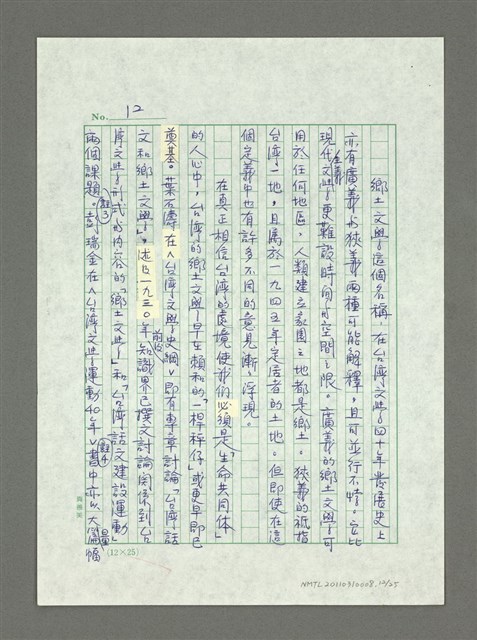 No. 12
鄉土文學這個名稱,在台灣文學四十年發展史上
亦有廣義與狹義兩種可能解釋,且可並行不悖。它比
現代文學更難設時間空間之限。廣義的鄉土文學可
全義
用於任何地區,人類建立家園之地都是鄉土。狹義的祇指
台灣一地,且屬於一九四五年定居者的土地。但即使在這
個定義中也有許多不同的意見漸漸浮現。
在真正相信台灣的處境使我們必須是「生命共同体」
的人心中,台灣的鄉土文學早在賴和的「一桿秤仔」或更早即已
奠基。葉石濤在<台灣文學史綱>即有專章討論「台灣話
文和鄉土文學」,述及一九三〇年前後知識界已撰文討論關係到台
灣文學形式與內容的「鄉土文學」和「台灣話文建設運動」
兩個課題。註3彭瑞金在<台灣文學運動40年>註4書中亦以大量篇幅
(12×25)
NMTL20110310008.12/25